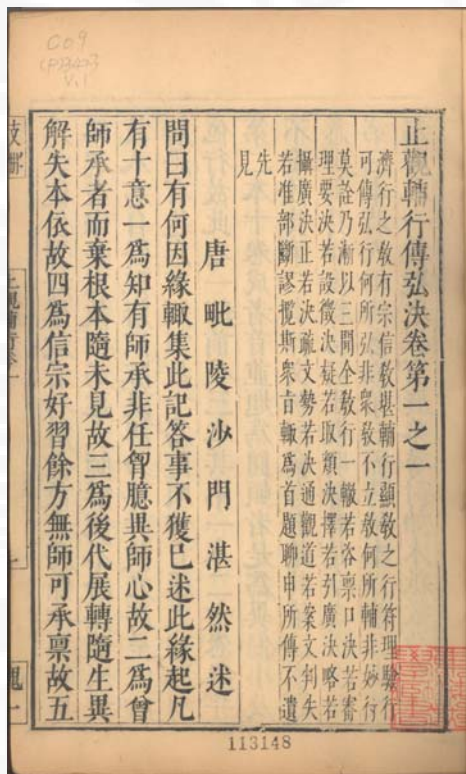 C09
V.1
止觀輔行傳弘決卷第一之一
濟行之教有宗信教堪輔行顯教之行符理驗行
可傳弘行何所弘非衆教不立教何所輔非妙行
莫詮乃漸以三聞全教行一轍若咨稟口決若審
理要決若設徵決疑若取類決擇若引廣決略若
攝廣決正若決疏文勢若決通觀道若案文判失
若准部斷謬攬斯衆旨輒爲首題聊申所傳不遺
先
見
唐毗陵沙門湛然述
問曰有何因緣輒集此記答事不獲已述此緣起凡
有十意一爲知有師承非任胷臆異師心故二爲曾
師承者而棄根本隨末見故三爲後代展轉隨生異
解失本依故四爲信宗好習餘方無師可承稟故五
113148